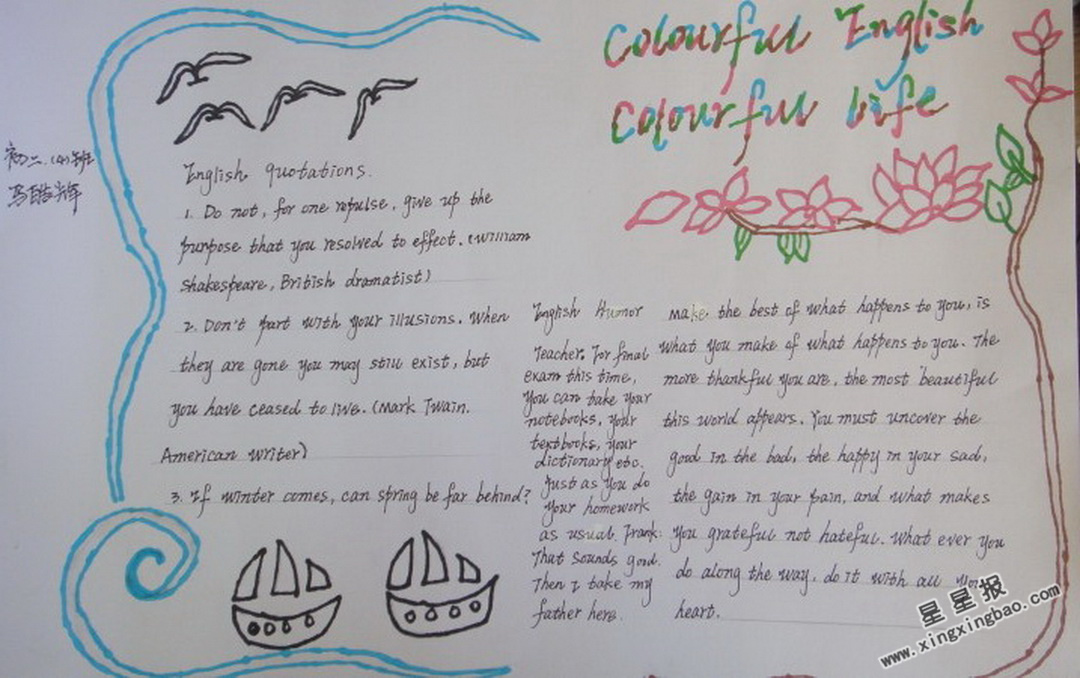 Colourful English
Colourful life
初二.(4)班
English quotations.
1. Do not, for one repulse, give up the
purpose that you resolved to effect. (William
Shakespeare, British dramatist)
2. Don't part with your illusions. When
they are gone you may still exist, but
you have ceased to live. (Mark Twain.
American writer)
3. If winter comes, can spring be far behind?
English Humor
Teacher: For final
exam this time,
you can take your
notebooks, your
textbooks, your
dictionary etc.
Just as you do
your homework
as usual. Frank:
That sounds good.
Then I take my
father here.
make the best of what happens to you, is
what you make of what happens to you. The
more thankful you are, the most beautiful
this world appears. You must uncover the
good in the bad, the happy in your sad,
the gain in your pain, and what makes
you grateful not hateful. What ever you
do along the way, do it with all your
heart.
星星报
www.xingxingbao.com